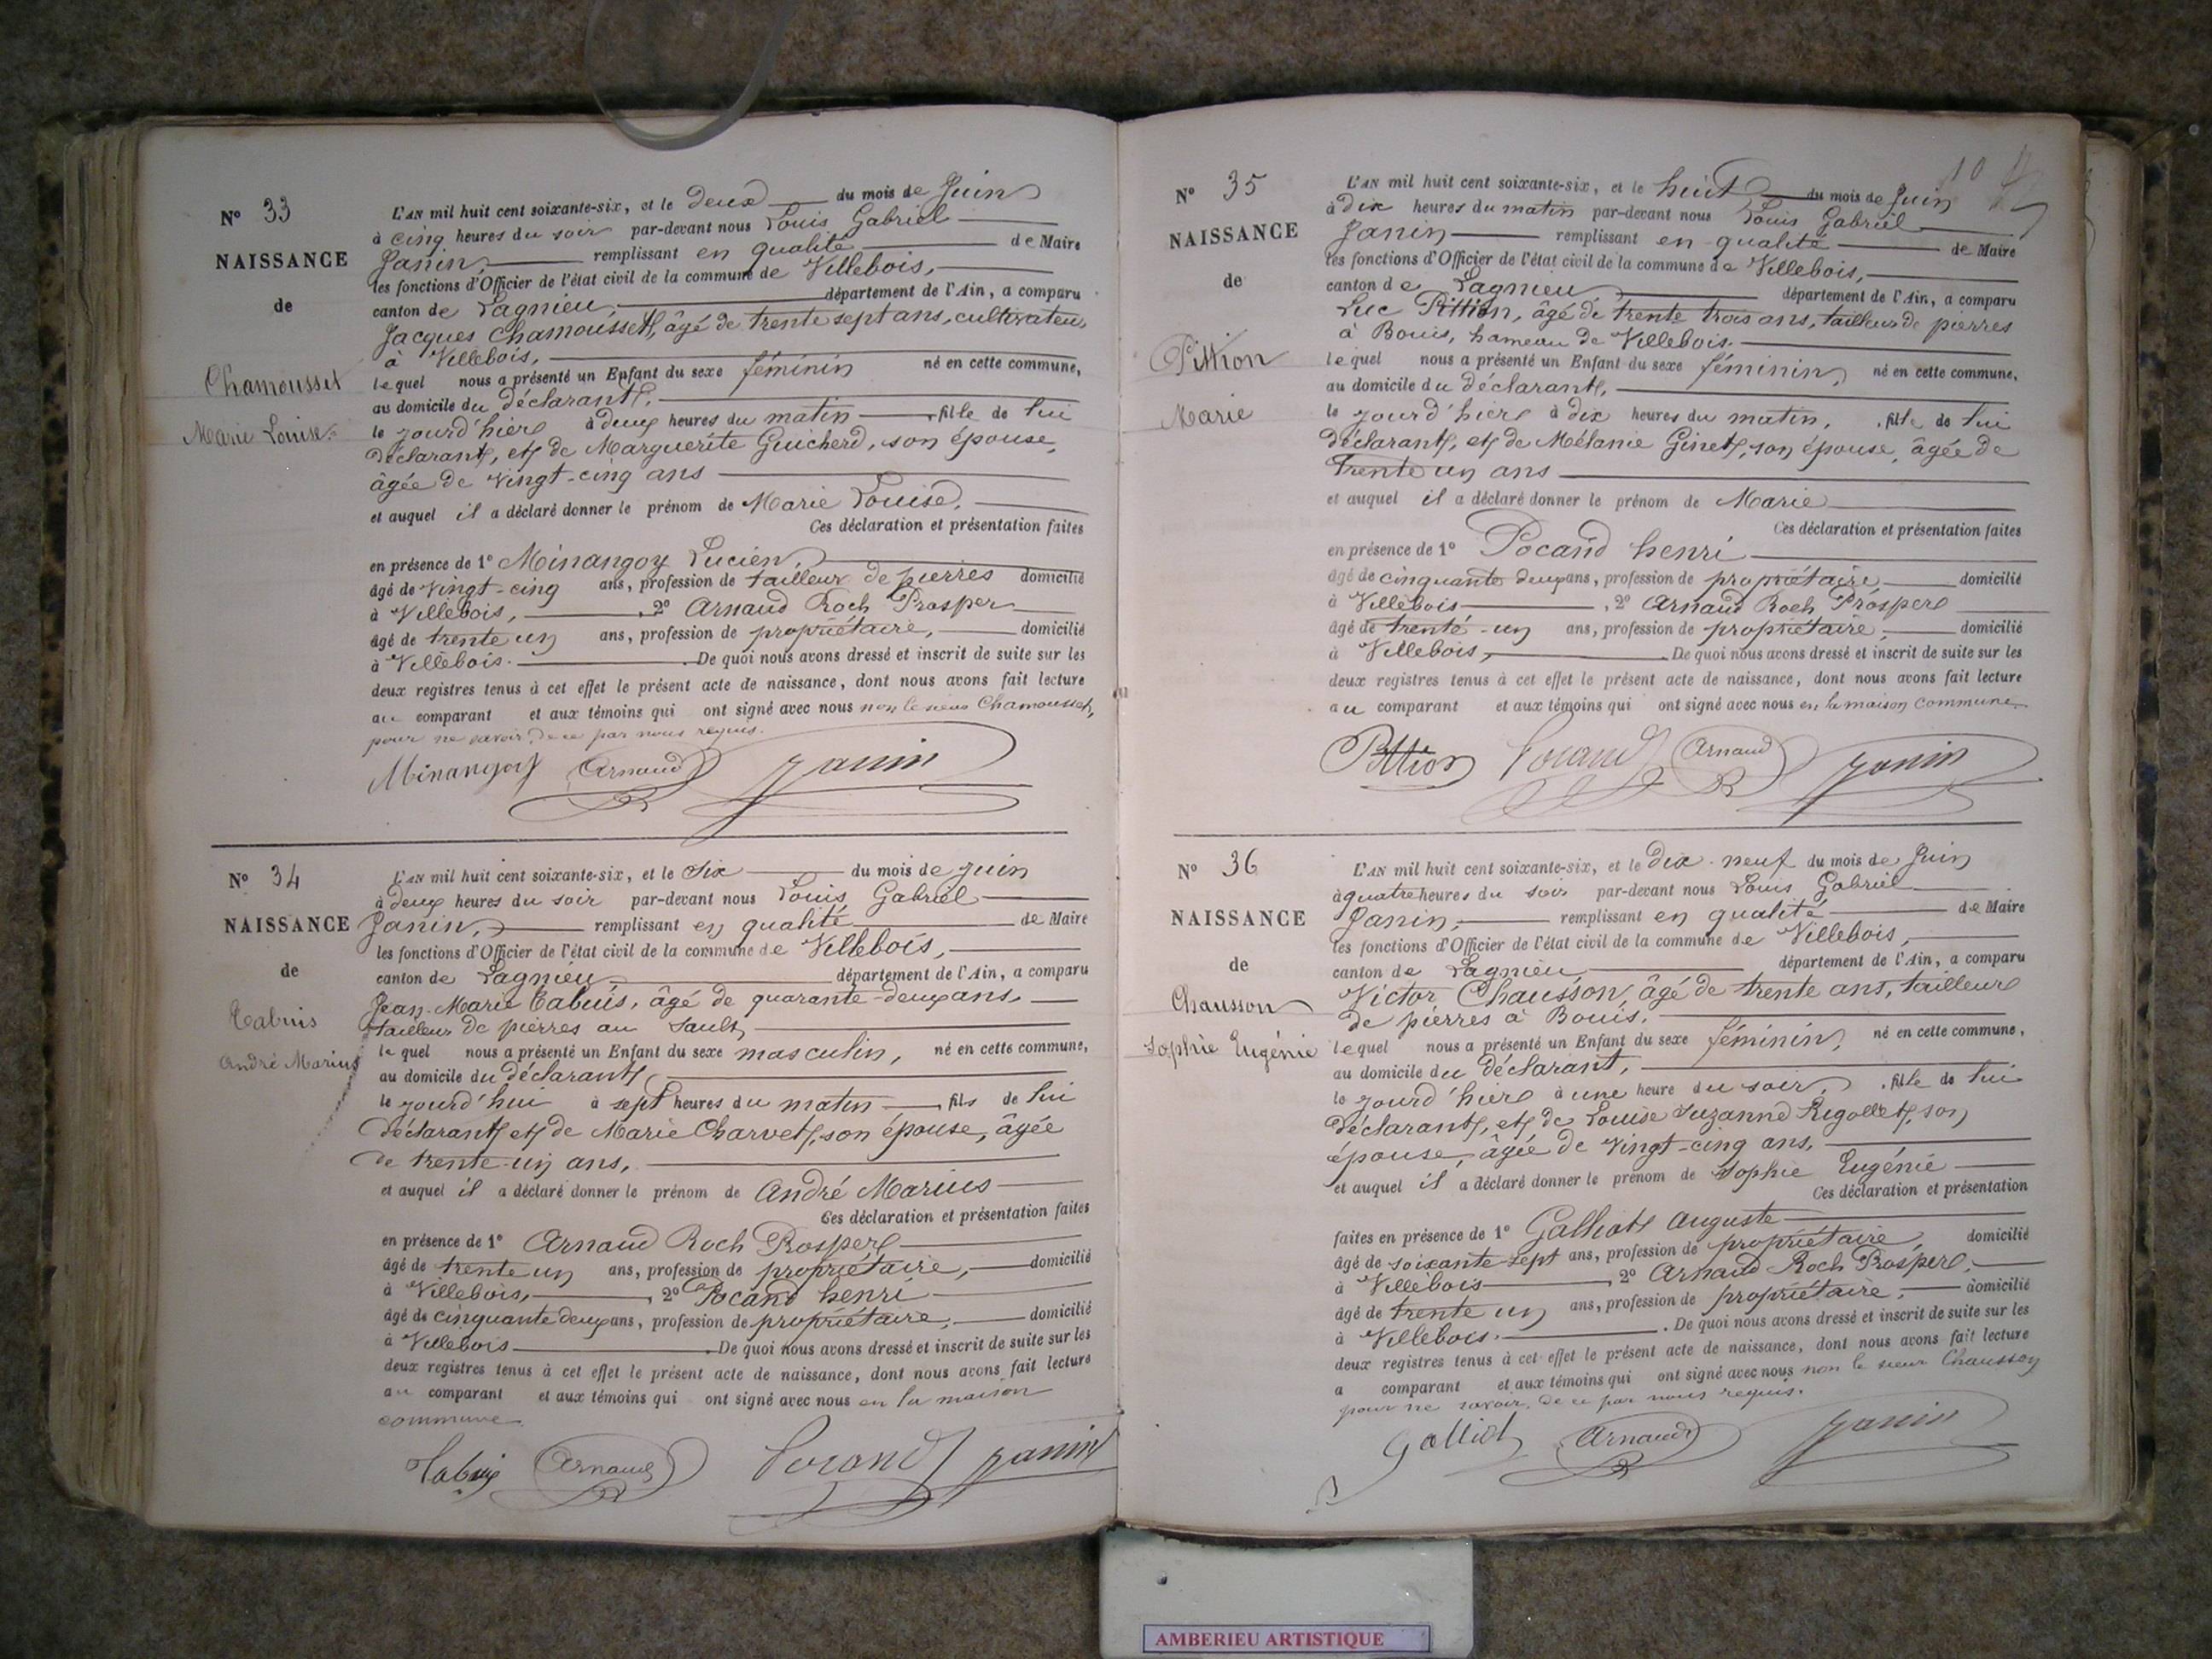 N° 33
NAISSANCE
de
Chamousset
Marie Louise
L'AN mil huit cent soixante-six, et le deux du mois de Juin
à cinq heures du soir par-devant nous Louis Gabriel
Janin, remplissant en qualité de Maire
les fonctions d'Officier de l'état civil de la commune de Villebois,
canton de Lagnieu, département de l'Ain, a comparu
Jacques Chamousset, âgé de trente sept ans, cultivateur
à Villebois,
lequel nous a présenté un Enfant du sexe féminin né en cette commune,
au domicile du déclarant,
le jourd'hier à deux heures du matin fille de lui
déclarant, et de Marguerite Guicherd, son épouse,
âgée de vingt-cinq ans
et auquel il a déclaré donner le prénom de Marie Louise,
Ces déclaration et présentation faites
en présence de 1° Minangoy Lucien,
âgé de vingt-cinq ans, profession de tailleur de pierres domicilié
à Villebois, 2° Arnaud Roch Prosper
âgé de trente un ans, profession de propriétaire, domicilié
à Villebois. De quoi nous avons dressé et inscrit de suite sur les
deux registres tenus à cet effet le présent acte de naissance, dont nous avons fait lecture
au comparant et aux témoins qui ont signé avec nous non le sieur Chamousset,
pour ne savoir, de ce par nous requis.
Minangoy Arnaud Janin
N° 34
NAISSANCE
de
Cabuis
André Marius
L'AN mil huit cent soixante-six, et le six du mois de juin
à deux heures du soir par-devant nous Louis Gabriel
Janin, remplissant en qualité de Maire
les fonctions d'Officier de l'état civil de la commune de Villebois,
canton de Lagnieu, département de l'Ain, a comparu
Jean-Marie Cabuis, âgé de quarante-deux ans,
tailleur de pierres au Sault,
lequel nous a présenté un Enfant du sexe masculin, né en cette commune,
au domicile du déclarant,
le jourd'hui à sept heures du matin fils de lui
déclarant et de Marie Charvet, son épouse, âgée
de trente-un ans,
et auquel il a déclaré donner le prénom de André Marius
Ces déclaration et présentation faites
en présence de 1° Arnaud Roch Prosper
âgé de trente un ans, profession de propriétaire, domicilié
à Villebois, 2° Pocand henri
âgé de cinquante deux ans, profession de propriétaire, domicilié
à Villebois De quoi nous avons dressé et inscrit de suite sur les
deux registres tenus à cet effet le présent acte de naissance, dont nous avons fait lecture
au comparant et aux témoins qui ont signé avec nous en la maison
commune
Cabuis Arnaud Pocand Janin
10
N° 35
NAISSANCE
de
Pittion
Marie
L'AN mil huit cent soixante-six, et le huit du mois de Juin
à dix heures du matin par-devant nous Louis Gabriel
Janin remplissant en qualité de Maire
les fonctions d'Officier de l'état civil de la commune de Villebois,
canton de Lagnieu département de l'Ain, a comparu
Luc Pittion, âgé de trente trois ans, tailleur de pierres
à Bouis, hameau de Villebois.
lequel nous a présenté un Enfant du sexe féminin, né en cette commune,
au domicile du déclarant,
le jourd'hier à dix heures du matin, fille de lui
déclarant, et de Mélanie Ginet, son épouse, âgée de
trente un ans
et auquel il a déclaré donner le prénom de Marie
Ces déclaration et présentation faites
en présence de 1° Pocand henri
âgé de cinquante deux ans, profession de propriétaire domicilié
à Villebois, 2° Arnaud Roch Prosper
âgé de trente-un ans, profession de propriétaire, domicilié
à Villebois, De quoi nous avons dressé et inscrit de suite sur les
deux registres tenus à cet effet le présent acte de naissance, dont nous avons fait lecture
au comparant et aux témoins qui ont signé avec nous en la maison commune
Pittion Pocand Arnaud Janin
N° 36
NAISSANCE
de
Chausson
Sophie Eugénie
L'AN mil huit cent soixante-six, et le dix-neuf du mois de Juin
à quatre heures du soir par-devant nous Louis Gabriel
Janin, remplissant en qualité de Maire
les fonctions d'Officier de l'état civil de la commune de Villebois,
canton de Lagnieu, département de l'Ain, a comparu
Victor Chausson, âgé de trente ans, tailleur
de pierres à Bouis,
lequel nous a présenté un Enfant du sexe féminin, né en cette commune,
au domicile du déclarant,
le jourd'hier à une heure du soir, fille de lui
déclarant, et de Louise Suzanne Rigollet, son
épouse, âgée de vingt-cinq ans,
et auquel il a déclaré donner le prénom de Sophie Eugénie
Ces déclaration et présentation
faites en présence de 1° Galliot Auguste
âgé de soixante sept ans, profession de propriétaire, domicilié
à Villebois, 2° Arnaud Roch Prosper,
âgé de trente un ans, profession de propriétaire, domicilié
à Villebois. De quoi nous avons dressé et inscrit de suite sur les
deux registres tenus à cet effet le présent acte de naissance, dont nous avons fait lecture
a comparant et aux témoins qui ont signé avec nous non le sieur Chausson
pour ne savoir, de ce par nous requis.
Galliot Arnaud Janin
AMBERIEU ARTISTIQUE